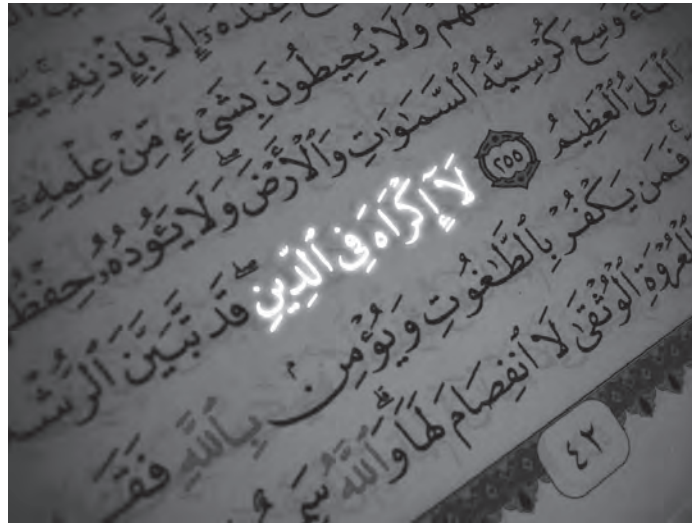 عِندَهُۥٓ إِلَّا بِإِذْنِهِۦ ۚ
وَلَا يُحِيطُونَ بِشَىْءٍ مِّنْ عِلْمِهِۦٓ
وَسِعَ كُرْسِيُّهُ ٱلسَّمَـٰوَٰتِ وَٱلْأَرْضَ ۖ وَلَا يَـُٔودُهُۥ حِفْظُ
ٱلْعَلِىُّ ٱلْعَظِيمُ ٢٥٥ لَآ إِكْرَاهَ فِى ٱلدِّينِ ۖ قَد تَّبَيَّنَ ٱلرُّشْ
فَمَن يَكْفُرْ بِٱلطَّـٰغُوتِ وَيُؤْمِنۢ بِٱللَّهِ فَقَ
ٱلْعُرْوَةِ ٱلْوُثْقَىٰ لَا ٱنفِصَامَ لَهَا ۗ وَٱللَّهُ سَمِ
٤٢